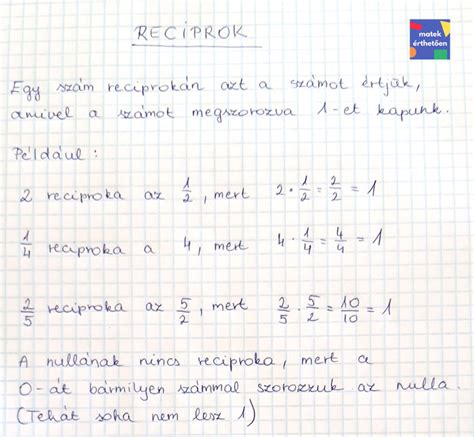 RECIPROK
matek
érthetően
Egy szám reciprokán azt a számot értjük,
amivel a számot megszorozva 1-et kapunk.
Például:
2 reciproka az 1/2, mert 2·1/2=2/2=1
1/4 reciproka a 4, mert 4·1/4=4/4=1
2/5 reciproka az 5/2, mert 2/5·5/2=10/10=1
A nullának nincs reciproka, mert a
0-át bármilyen számmal szorozzuk az nulla.
(Tehát soha nem lesz 1)